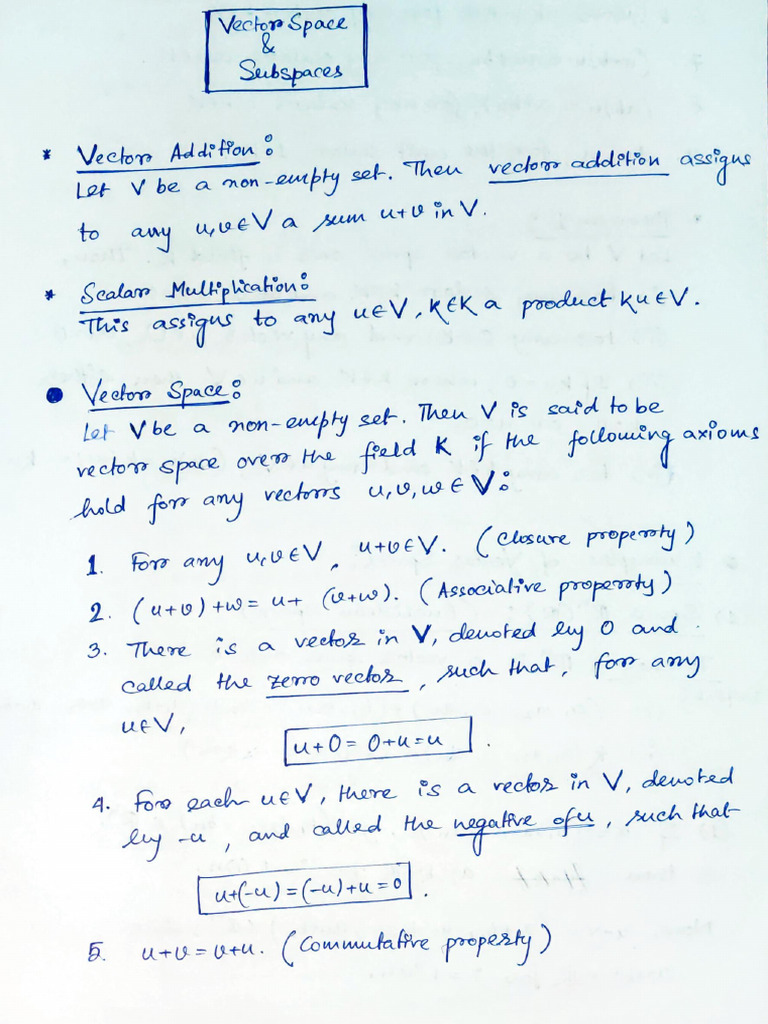 Vector Space
&
Subspaces
* Vector Addition:
Let V be a non-empty set. Then vector addition assigns
to any u,v∈V a sum u+v in V.
* Scalar Multiplication:
This assigns to any u∈V, K∈K a product Ku∈V.
● Vector Space:
Let V be a non-empty set. Then V is said to be
vector space over the field K if the following axioms
hold for any vectors u,v,w∈V:
1. For any u,v∈V, u+v∈V. (Closure property)
2. (u+v)+w = u+ (v+w). (Associative property)
3. There is a vector in V, denoted by 0 and
called the zero vector, such that, for any
u∈V,
u+0 = 0+u = u.
4. For each u∈V, there is a vector in V, denoted
by -u, and called the negative of u, such that
u+(-u) = (-u)+u = 0.
5. u+v = v+u. (Commutative property)